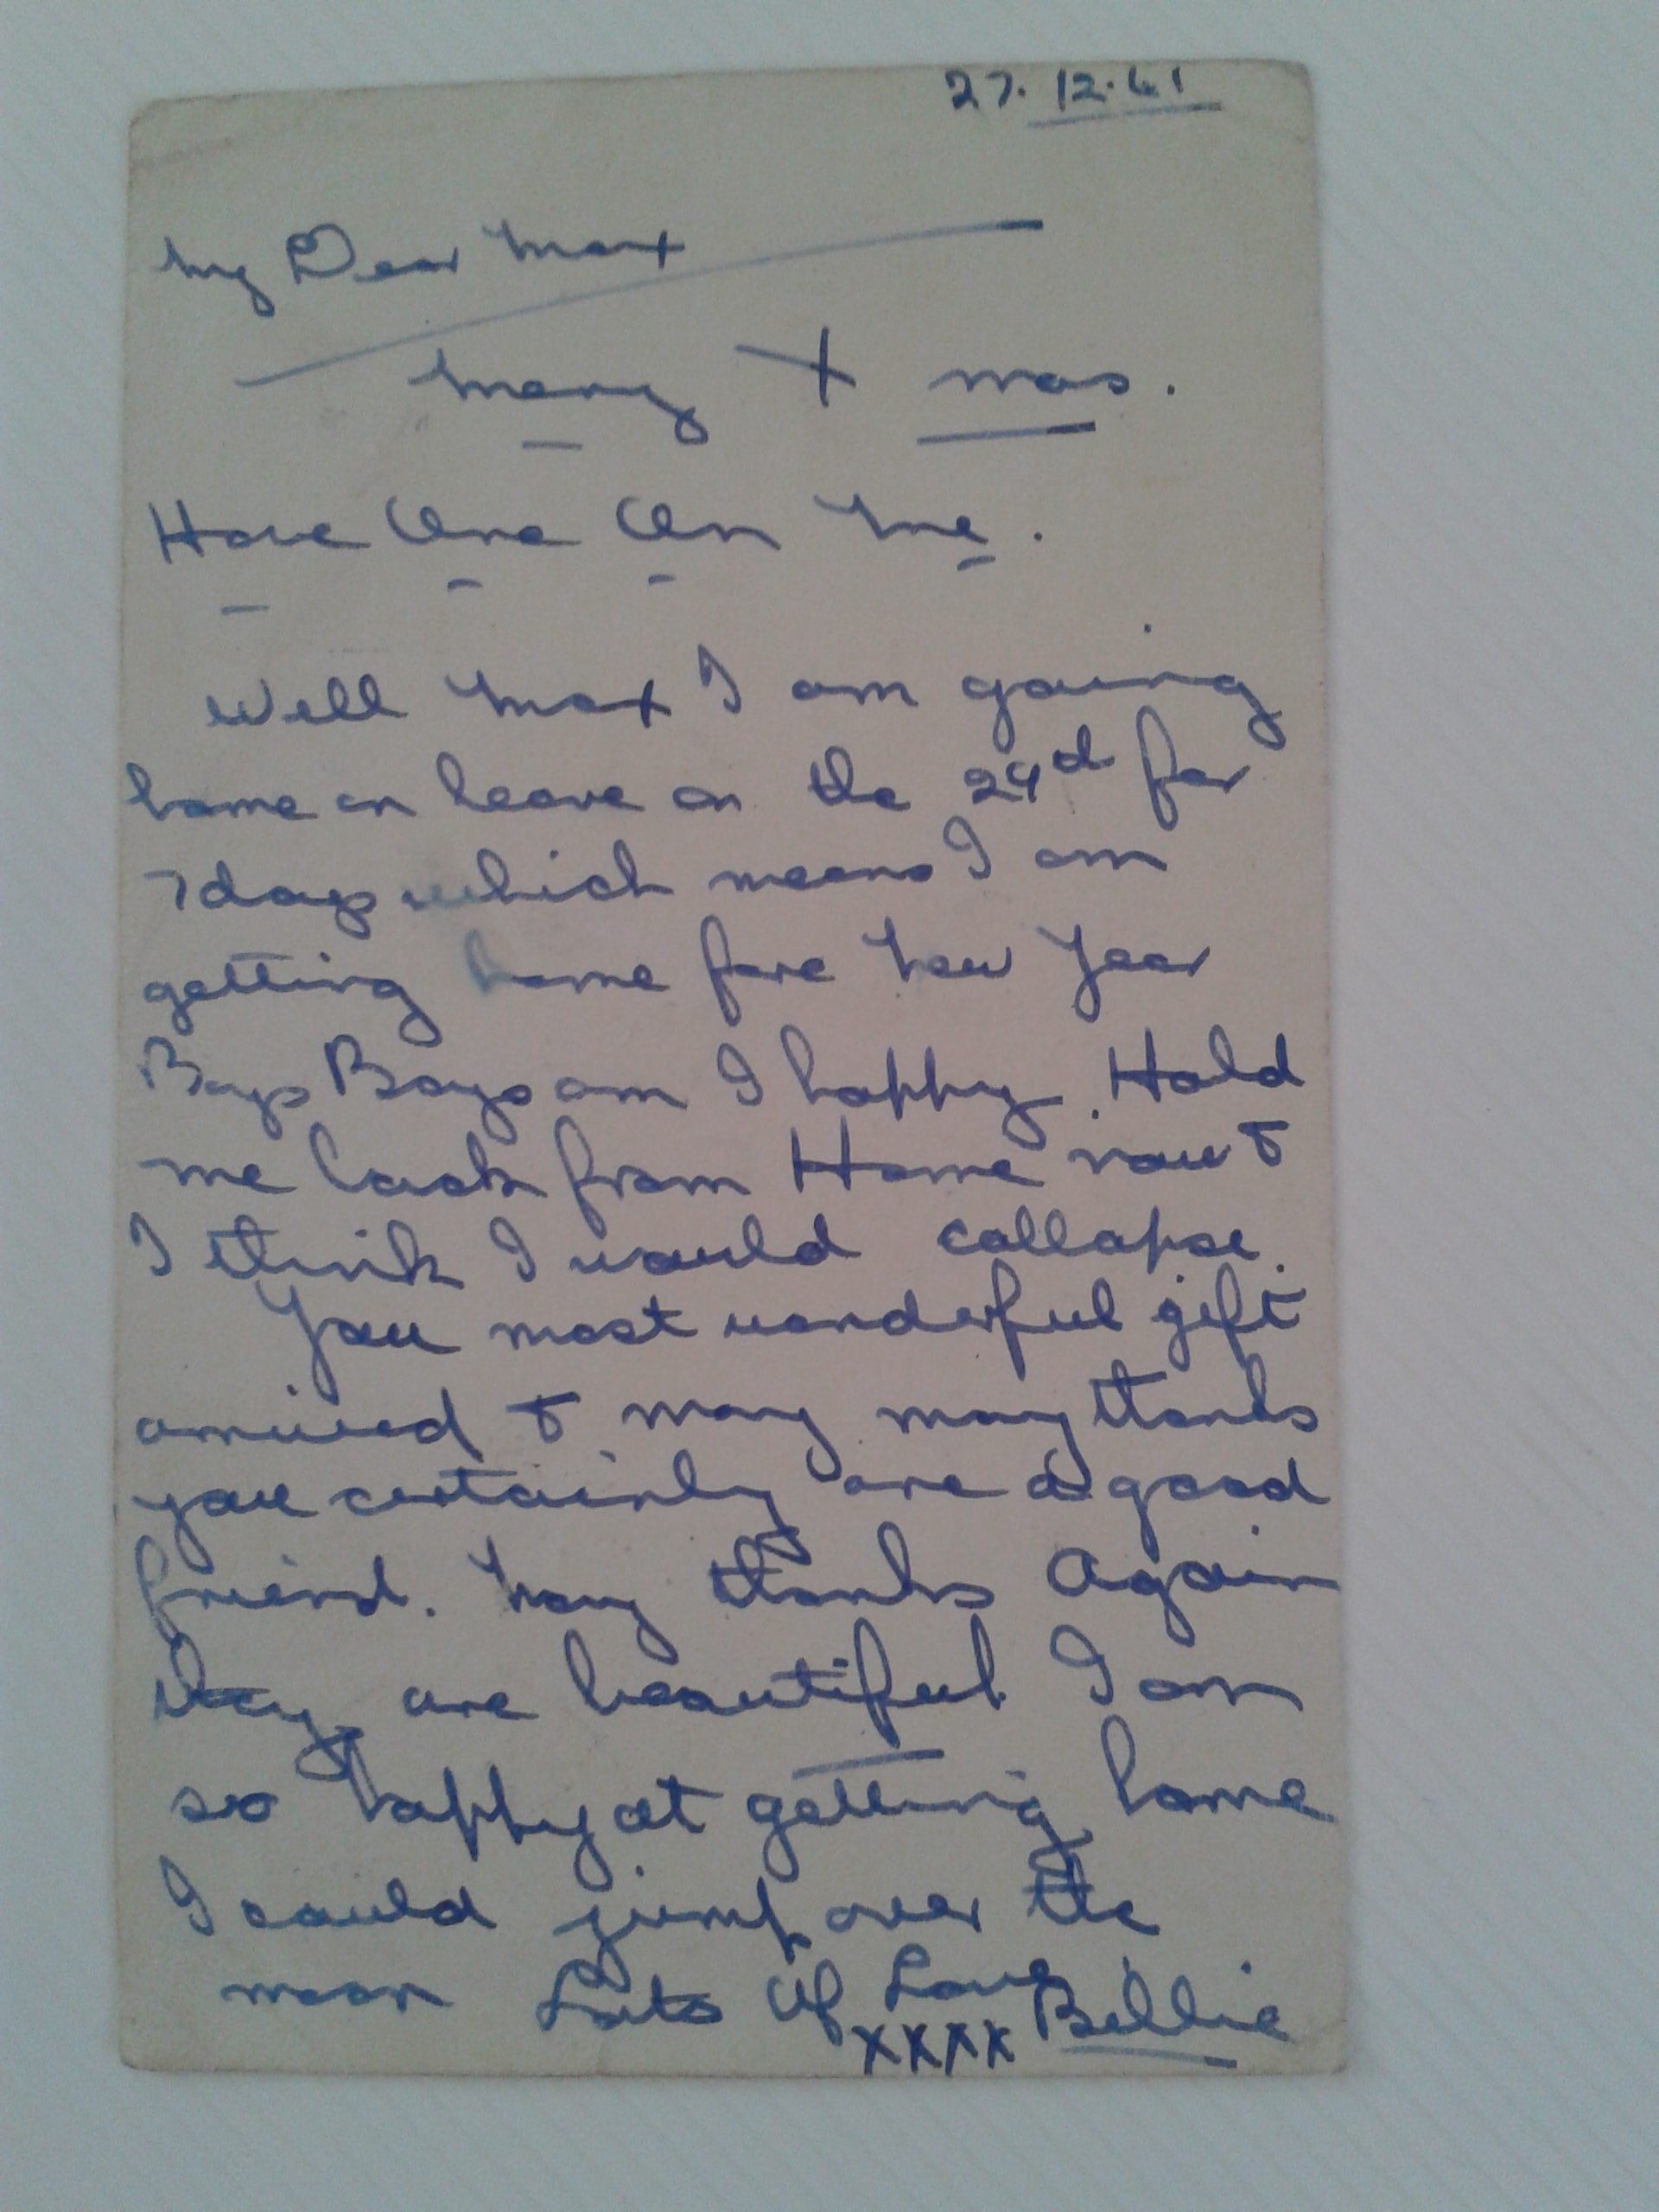 27.12.41
My Dear Max
Merry X mas.
Have One On Me.
Well Max I am going
home on leave on the 29d for
7 days which means I am
getting home fore New Year
Boys Boys am I happy. Hold
me back from Home now &
I think I would collapse.
You most wonderful gift
arrived & many many thanks
you certainly are a good
friend. Many thanks Again
they are beautiful I am
so happy at getting home
I could jump over the
moon Lots Of Love Billie
xxxx